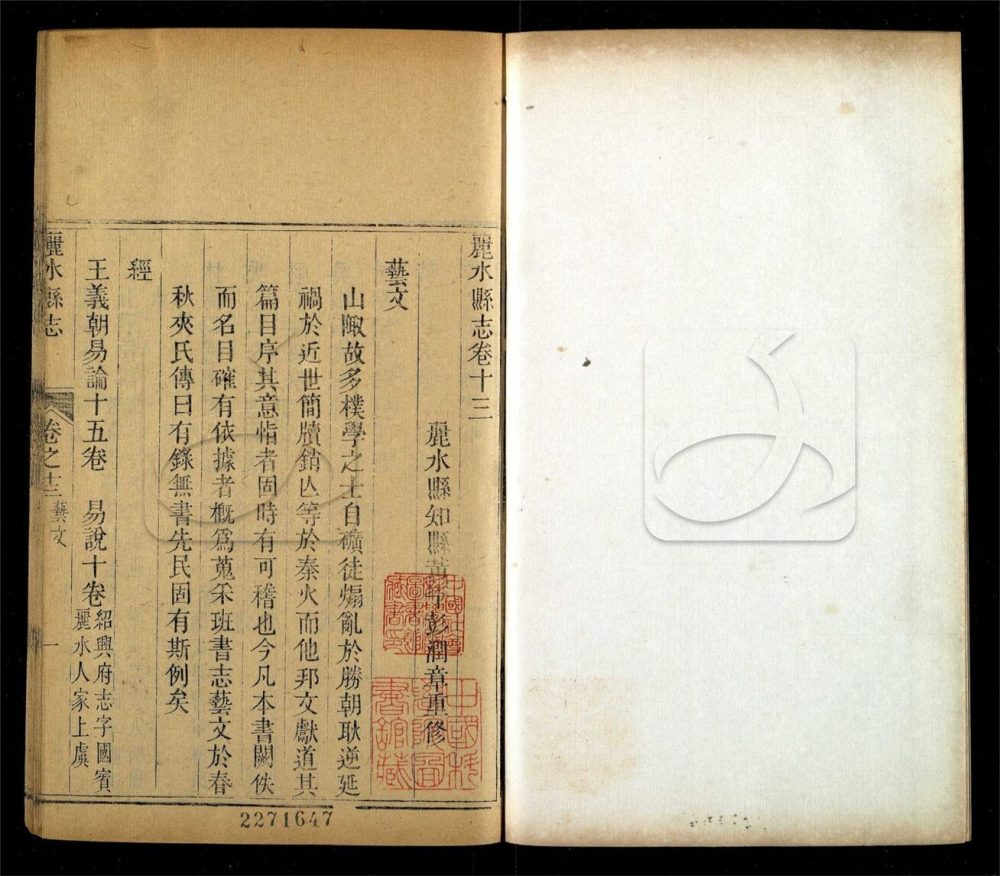 麗水縣志卷十三
麗水縣知縣黃彭潤章重修
藝文
山陬故多樸學之士自礦徒煽亂於勝朝耿逆延
禍於近世簡牘銷亾等於秦火而他邦文獻道其
篇目序其意恉者固時有可稽也今凡本書闕佚
而名目確有依據者概爲蒐采班書志藝文於春
秋夾氏傳曰有錄無書先民固有斯例矣
經
王義朝易論十五卷 易說十卷 紹興府志字國賓
麗水人家上虞
麗水縣志 卷之十三 藝文 一
2271647